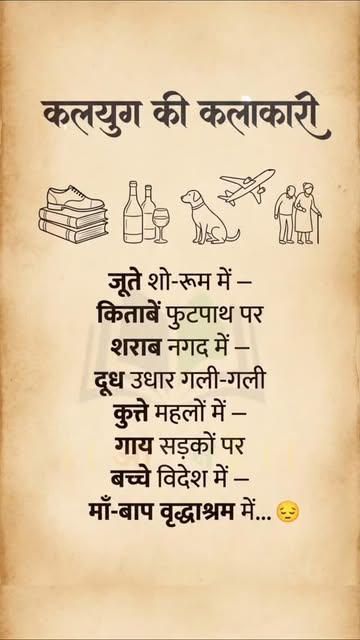 कलयुग की कलाकारी
जूते शो-रूम में –
किताबें फुटपाथ पर
शराब नगद में –
दूध उधार गली-गली
कुत्ते महलों में –
गाय सड़कों पर
बच्चे विदेश में –
माँ-बाप वृद्धाश्रम में... 😔